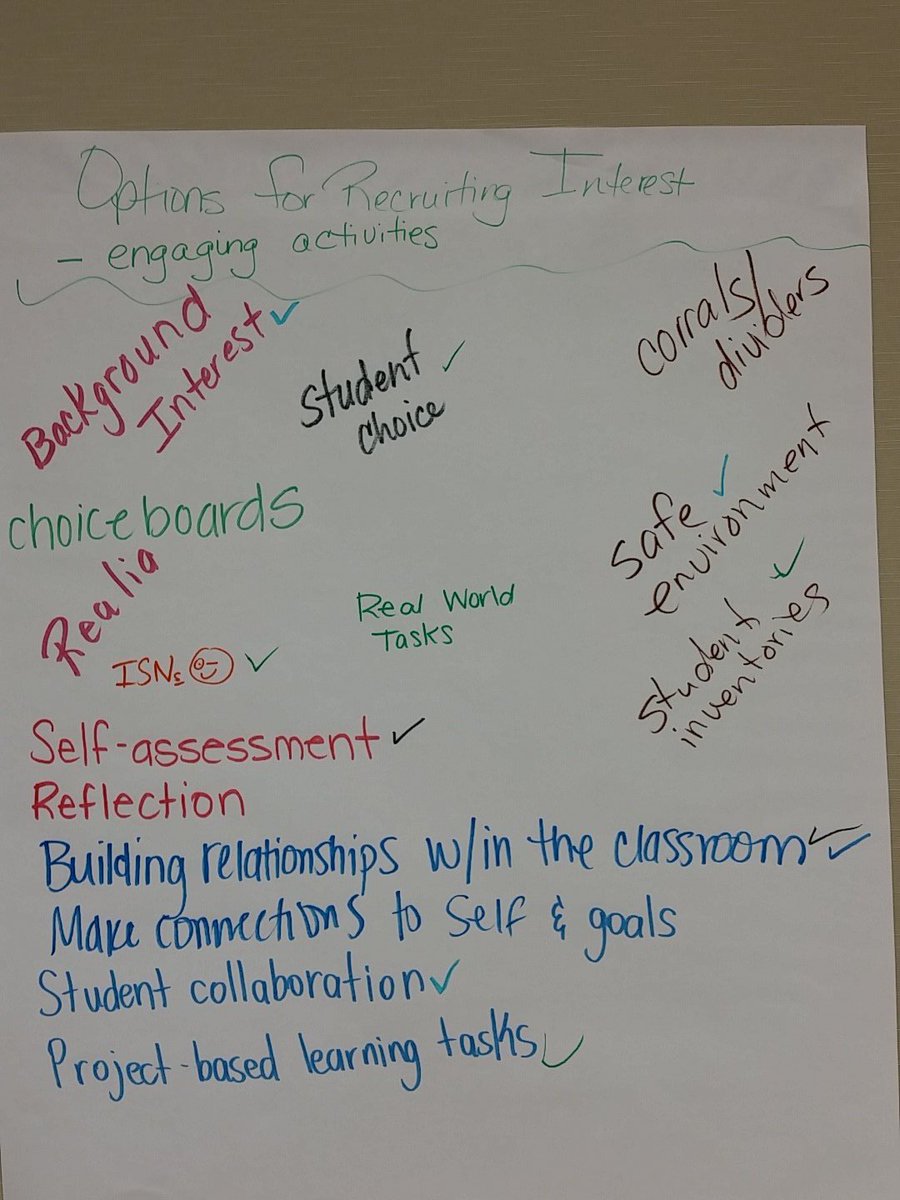 Options for Recruiting Interest
- engaging activities
Background
Interest ✓
Student ✓
choice
corrals/
dividers
choice boards
safe ✓
environment
Realia
Real World
Tasks
ISNs ✓
student ✓
inventories
Self-assessment ✓
Reflection
Building relationships w/in the classroom ✓✓
Make connections to self & goals
Student collaboration ✓
Project-based learning tasks ✓